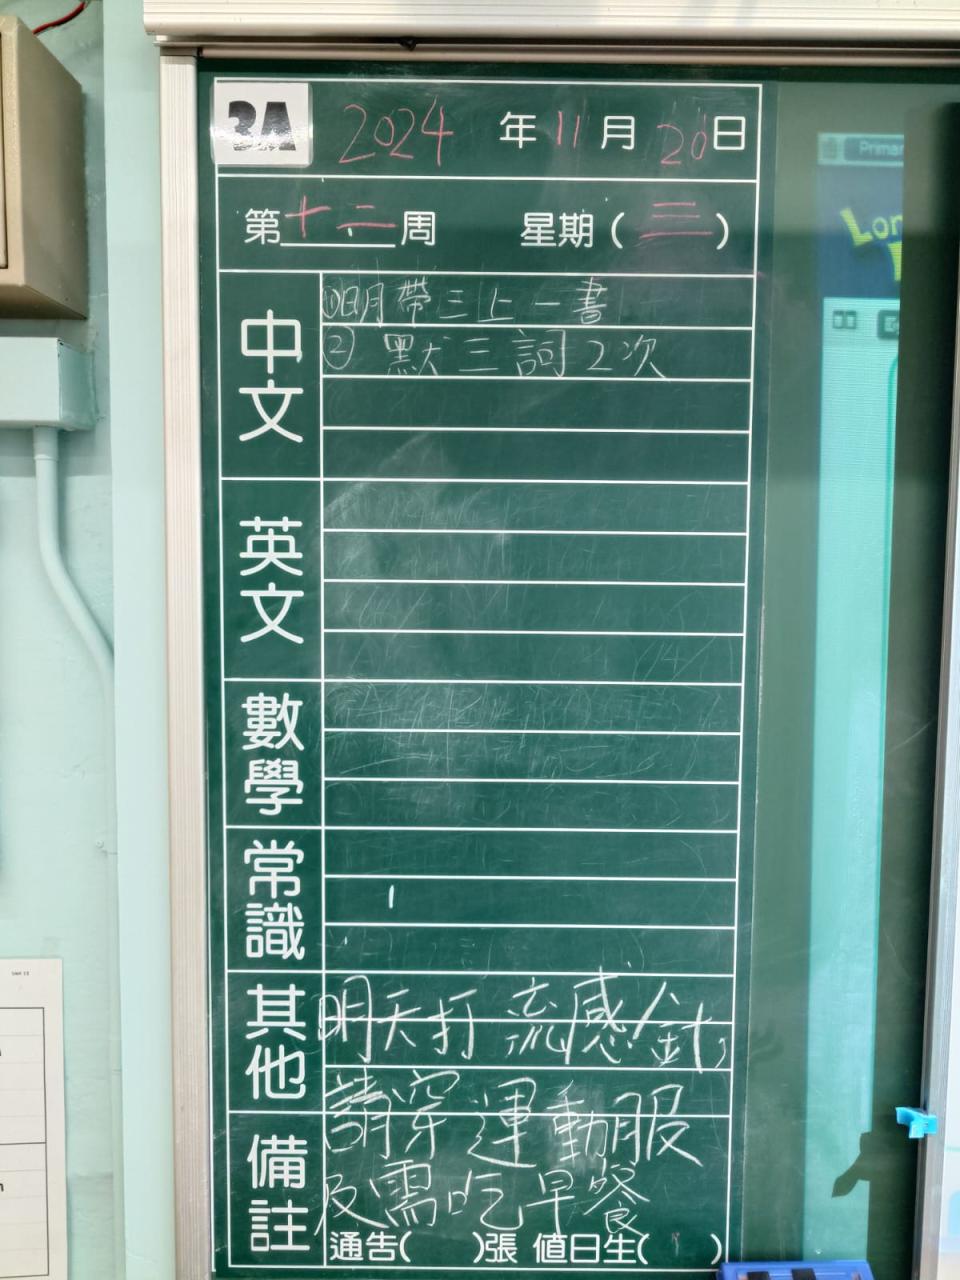 3A 2024年11月20日
第十二周 星期(三)
中文
①明帶三上一書
②默三詞2次
英文
數學
常識
其他
明天打流感針,
請穿運動服
備註
及需吃早餐
通告( )張 值日生( )
Primar
Lon